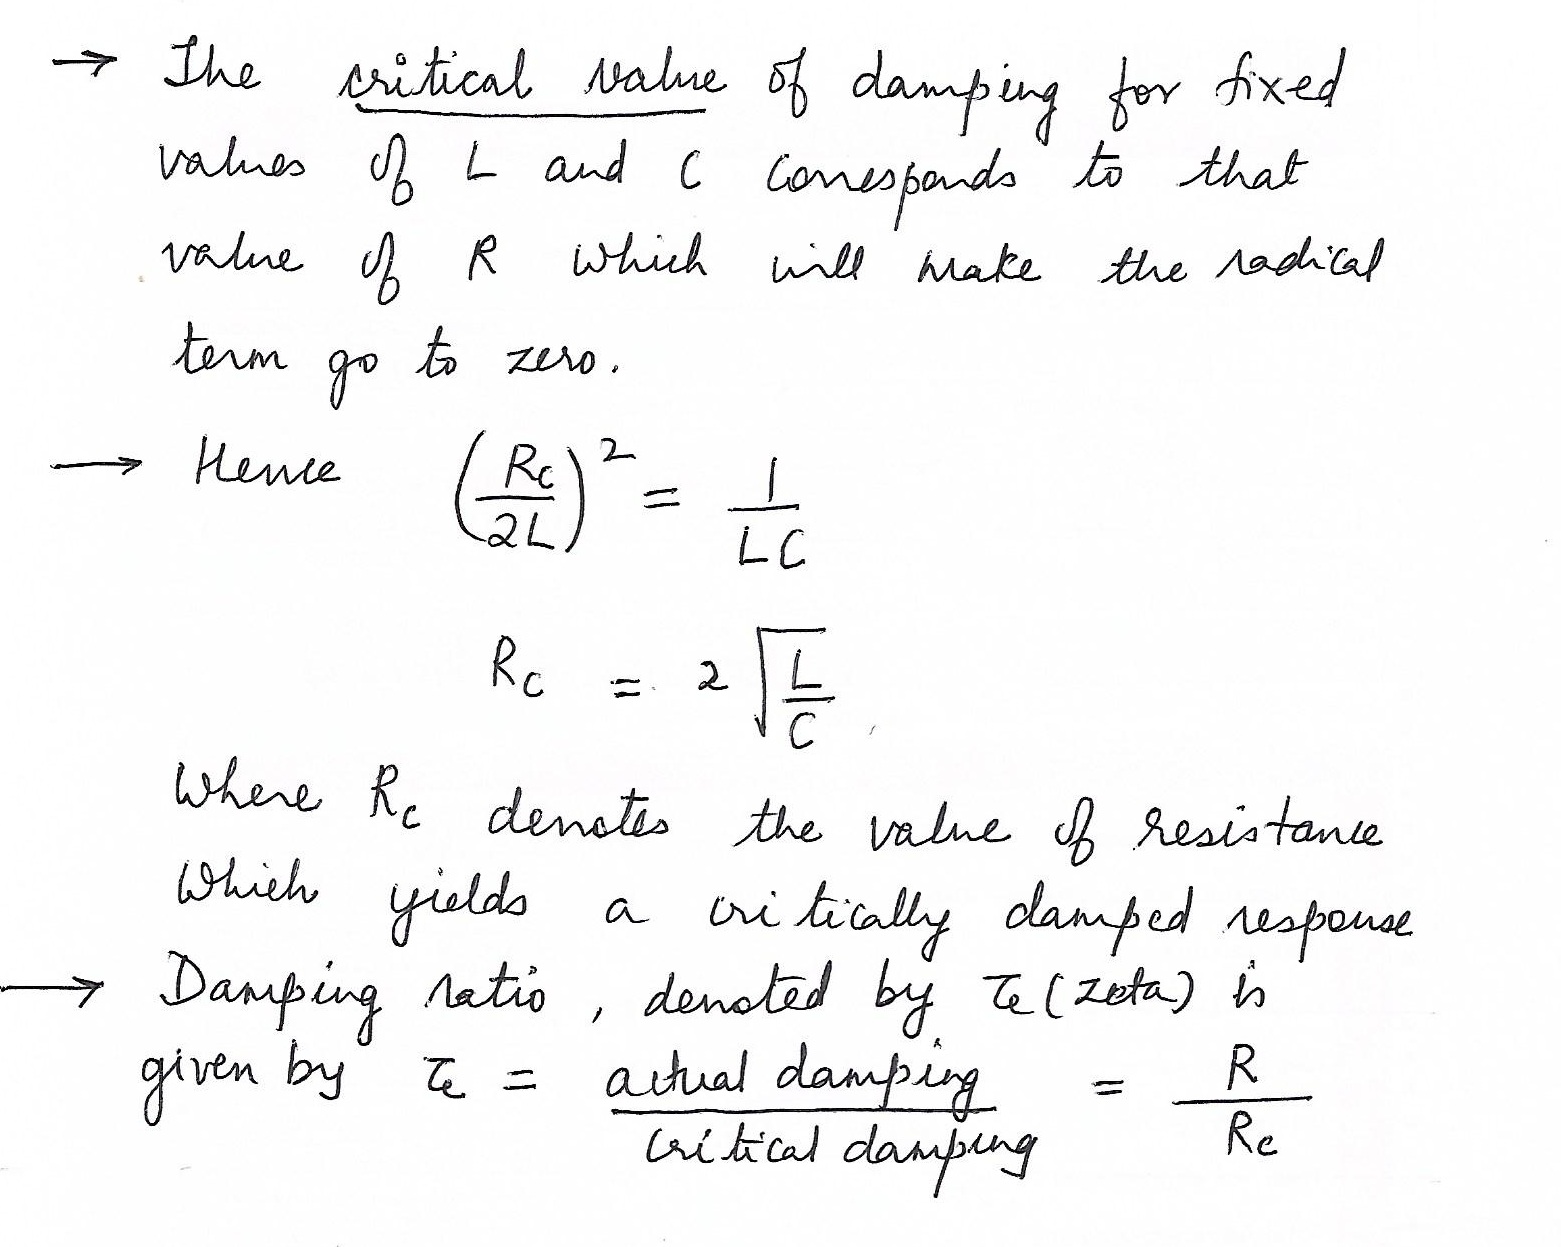 → The critical value of damping for fixed
values of L and C corresponds to that
value of R which will make the radical
term go to zero.
→ Hence (Rc/2L)² = 1/LC
Rc = 2√(L/C)
Where Rc denotes the value of resistance
which yields a critically damped response
→ Damping ratio, denoted by ζ (zeta) is
given by ζ = actual damping/critical damping = R/Rc